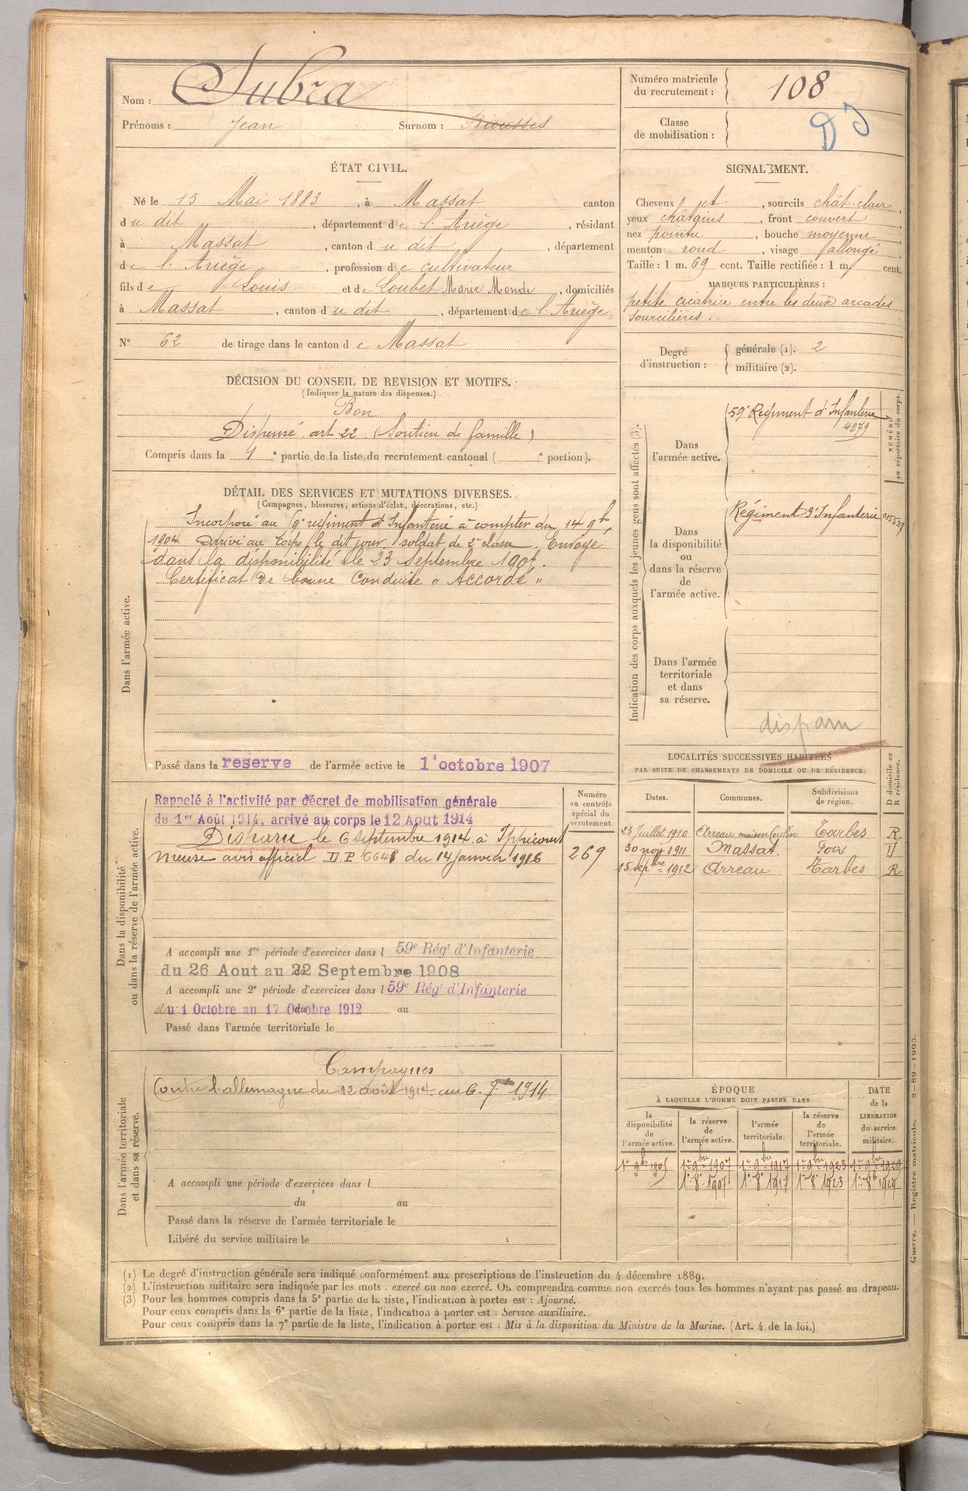 Nom : Subra
Prénoms : Jean Surnom : Rousses
Numéro matricule du recrutement : 108
Classe de mobilisation :
ÉTAT CIVIL.
Né le 15 Mai 1883, à Massat canton
du dit, département de l'Ariège, résidant
à Massat, canton du dit, département
de l'Ariège, profession de cultivateur
fils de Louis et de Loubet Marie Mondi, domiciliés
à Massat, canton du dit, département de l'Ariège
N° 62 de tirage dans le canton de Massat
SIGNALEMENT.
Cheveux et, sourcils chât. clair,
yeux châtains, front couvert
nez pointu, bouche moyenne
menton rond, visage allongé
Taille : 1 m. 69 cent. Taille rectifiée : 1 m. cent.
MARQUES PARTICULIÈRES :
petite cicatrice entre les deux arcades
sourcilières.
Degré d'instruction : générale (1). 2
militaire (2).
DÉCISION DU CONSEIL DE REVISION ET MOTIFS.
(Indiquer la nature des dispenses.)
Bon
Dispensé art 22 (Soutien de famille)
Compris dans la 1e partie de la liste du recrutement cantonal ( e portion).
DÉTAIL DES SERVICES ET MUTATIONS DIVERSES.
(Campagnes, blessures, actions d'éclat, décorations, etc.)
Dans l'armée active.
Incorporé au 9e régiment d'Infanterie à compter du 14 9bre
1904. Arrivé au Corps le dit jour, soldat de 2e classe. Envoyé
dans la disponibilité le 23 Septembre 1905.
Certificat de bonne Conduite « Accordé »
Passé dans la reserve de l'armée active le 1er octobre 1907
Indication des corps auxquels les jeunes gens sont affectés (3).
NUMÉRO au répertoire du corps.
Dans l'armée active.
59e Régiment d'Infanterie
4979
Dans la disponibilité ou dans la réserve de l'armée active.
Régiment d'Infanterie
Dans l'armée territoriale et dans sa réserve.
disparu
Dans la disponibilité ou dans la réserve de l'armée active.
Rappelé à l'activité par décret de mobilisation générale
du 1er Août 1914, arrivé au corps le 12 Aout 1914
Disparu le 6 septembre 1914 à Ippécourt
Meuse avis officiel du 14 Janvier 1916
A accompli une 1re période d'exercices dans l 59e Rég' d'Infanterie
du 26 Aout au 22 Septembre 1908
A accompli une 2e période d'exercices dans l 59e Rég' d'Infanterie
du 1 Octobre au 17 Octobre 1912 au
Passé dans l'armée territoriale le
Numéro au contrôle spécial du recrutement.
269
LOCALITÉS SUCCESSIVES HABITÉES
PAR SUITE DE CHANGEMENTS DE DOMICILE OU DE RÉSIDENCE.
Dates. Communes. Subdivisions de région. D domicile ou R résidence.
23 Juillet 1910 Arreau maison Coulin Tarbes R
30 nov 1911 Massat. Foix D
15 septbre 1912 Arreau Tarbes R
Dans l'armée territoriale et dans sa réserve.
Campagnes
Contre l'allemagne du 12 août 1914 au 6. 7bre 1914
A accompli une période d'exercices dans l
du au
Passé dans la réserve de l'armée territoriale le
Libéré du service militaire le
ÉPOQUE
À LAQUELLE L'HOMME DOIT PASSER DANS
la disponibilité de l'armée active. la réserve de l'armée active. l'armée territoriale. la réserve de l'armée territoriale. DATE de la LIBÉRATION du service militaire.
1er 9bre 1905 1er 9bre 1907 1er 9bre 1917 1er 9bre 1923
1er 8bre 1907 1er 8bre 1917 1er 8bre 1923
Guerre. — Registre matricule. 2-89-1903.
(1) Le degré d'instruction générale sera indiqué conformément aux prescriptions de l'instruction du 4 décembre 1889.
(2) L'instruction militaire sera indiquée par les mots : exercé ou non exercé. On comprendra comme non exercés tous les hommes n'ayant pas passé au drapeau.
(3) Pour les hommes compris dans la 5e partie de la liste, l'indication à porter est : Ajourné.
Pour ceux compris dans la 6e partie de la liste, l'indication à porter est : Service auxiliaire.
Pour ceux compris dans la 7e partie de la liste, l'indication à porter est : Mis à la disposition du Ministre de la Marine. (Art. 4 de la loi.)